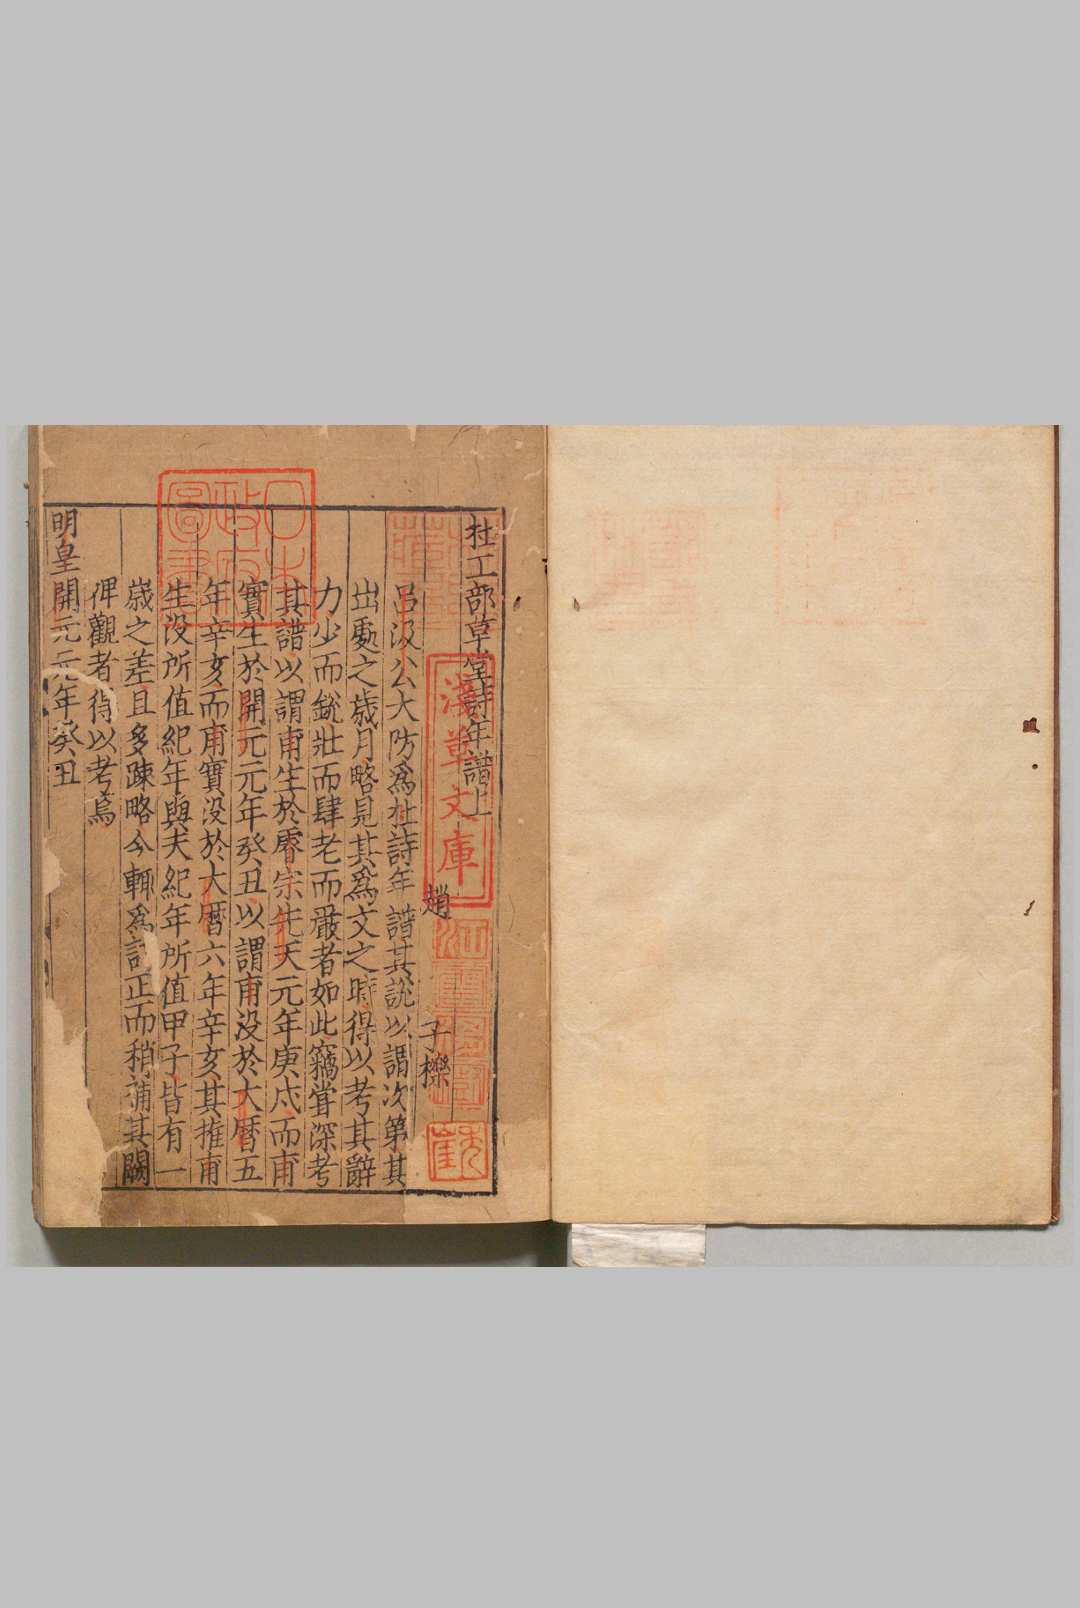 杜工部草堂詩年譜上
趙 子櫟
呂汲公大防爲杜詩年譜其說以謂次第其
出處之歲月略見其爲文之時得以考其辭
力少而銳壯而肆老而嚴者如此竊嘗深考
其譜以謂甫生於睿宗先天元年庚戌而甫
實生於開元元年癸丑以謂甫没於大曆五
年辛亥而甫實没於大曆六年辛亥其推甫
生没所值紀年與夫紀年所值甲子皆有一
歲之差且多踈略今輒爲訂正而稍補其闕
俾觀者得以考焉
明皇開元元年癸丑
日本
政府
圖書
淺草文庫